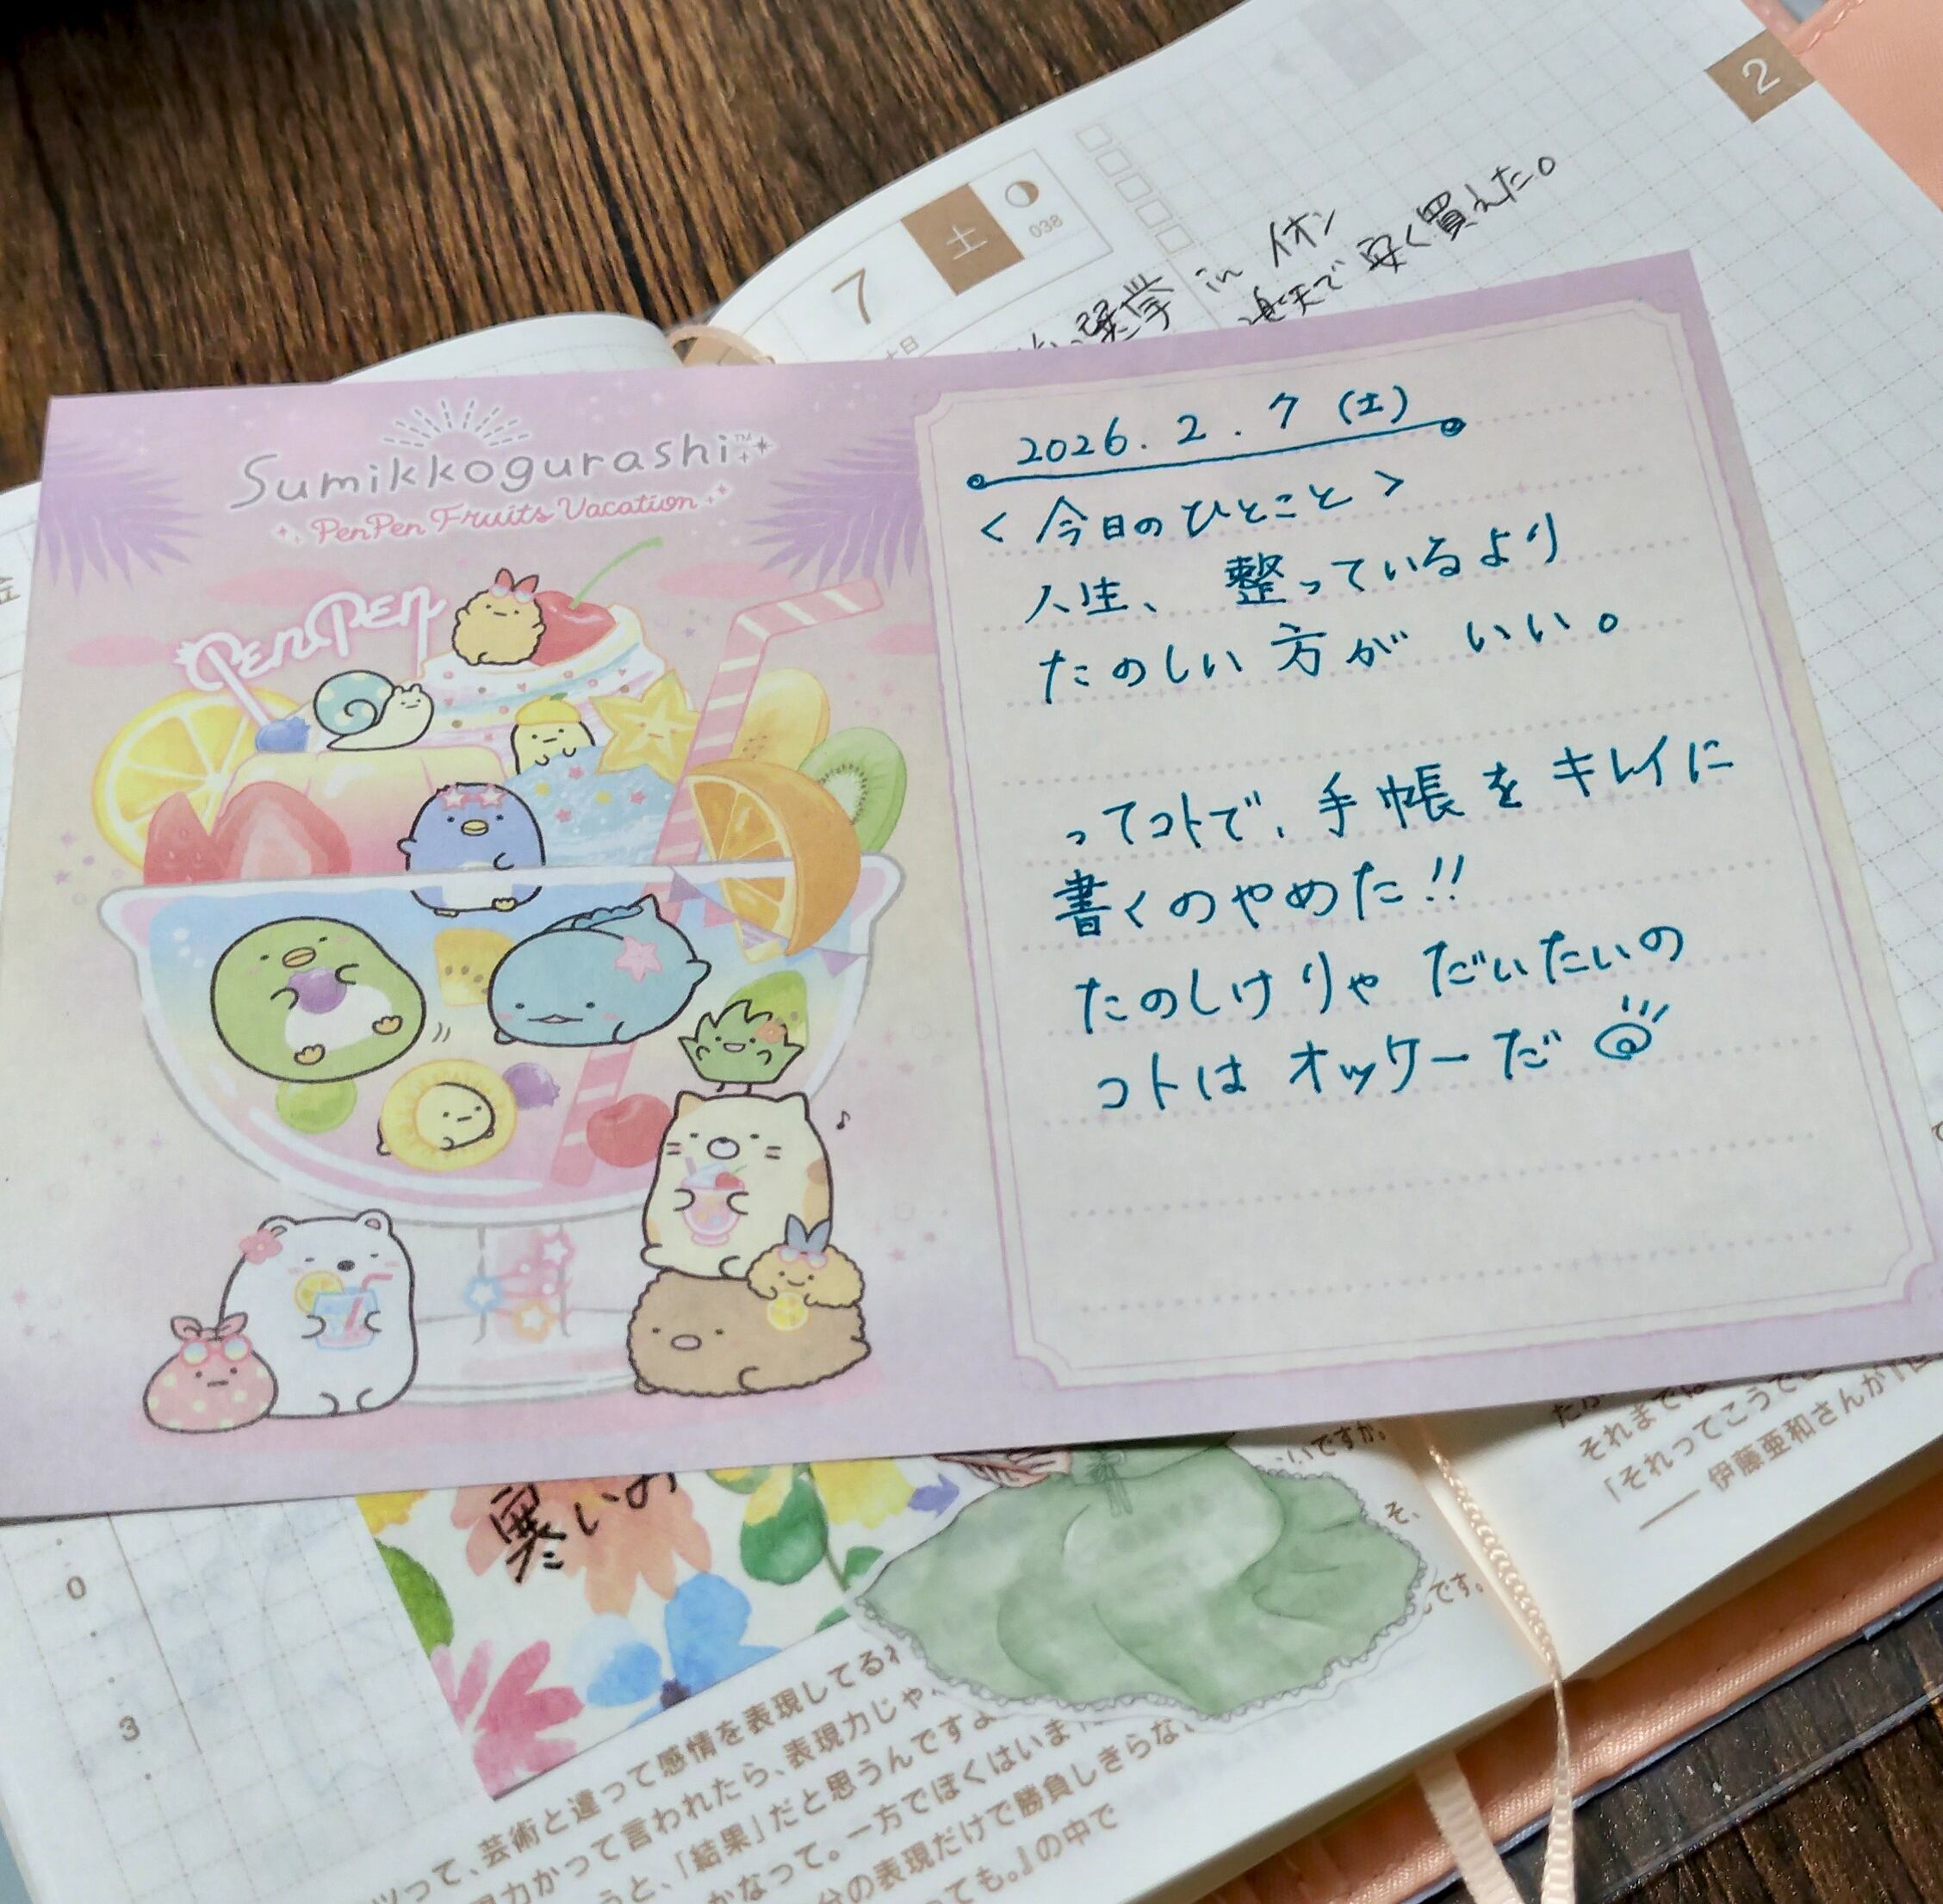 2
土
7
038
選挙 in イオン
楽天で安く買えた。
Sumikkogurashi™
PenPen Fruits Vacation
PenPen
2026. 2. 7 (土)
<今日のひとこと>
人生、整っているより
たのしい方が いい。
ってコトで、手帳をキレイに
書くのやめた!!
たのしけりゃ だいたいの
コトは オッケーだ
それまでは
「それってこうで
── 伊藤亜和さんが
いですか。
そ、
です。
寒いの
0
3
って、芸術と違って感情を表現してる
力かって言われたら、表現力じゃ
うと、「結果」だと思うんですよ
かなって。一方でぼくはいま
分の表現だけで勝負しきらな
ても。』の中で